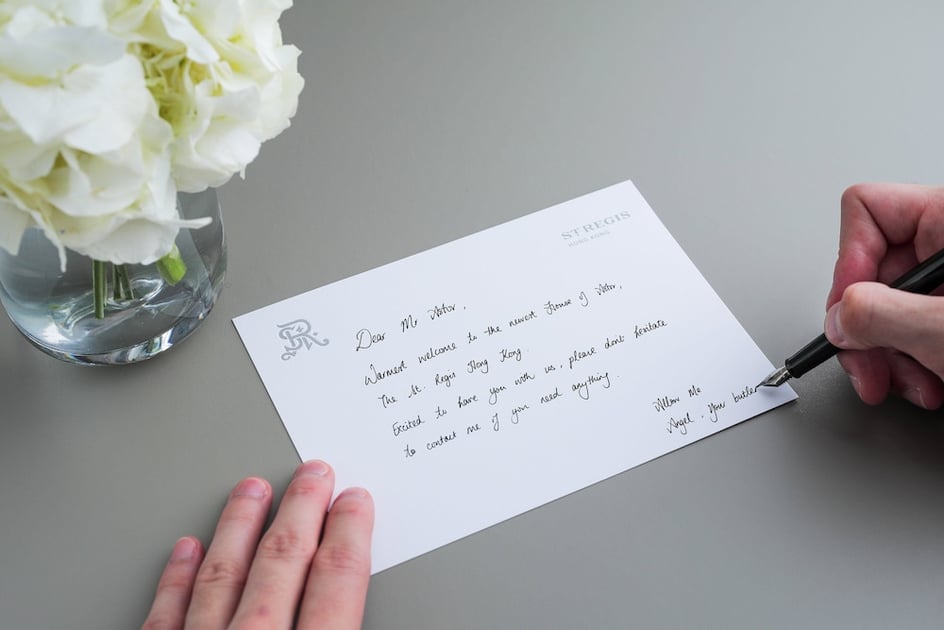 ST REGIS
HONG KONG
Dear Mr Astor,
Warmest welcome to the newest House of Astor,
The St. Regis Hong Kong.
Excited to have you with us, please don't hesitate
to contact me if you need anything.
Allow Me
Angel, Your butler